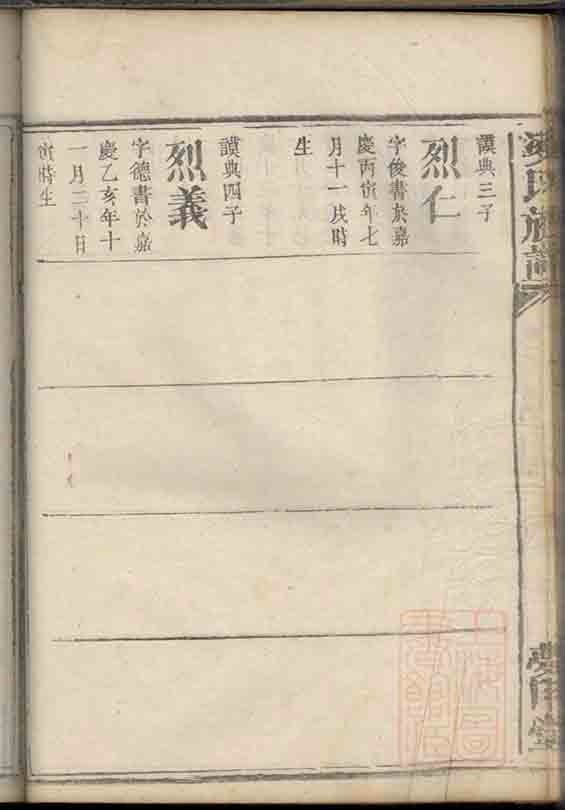 氏族譜
謨典三子
烈仁
字俊書於嘉
慶丙寅年七
月十一戌時
生
謨典四子
烈義
字德書於嘉
慶乙亥年十
一月二十日
寅時生
堂
上海圖
書館藏